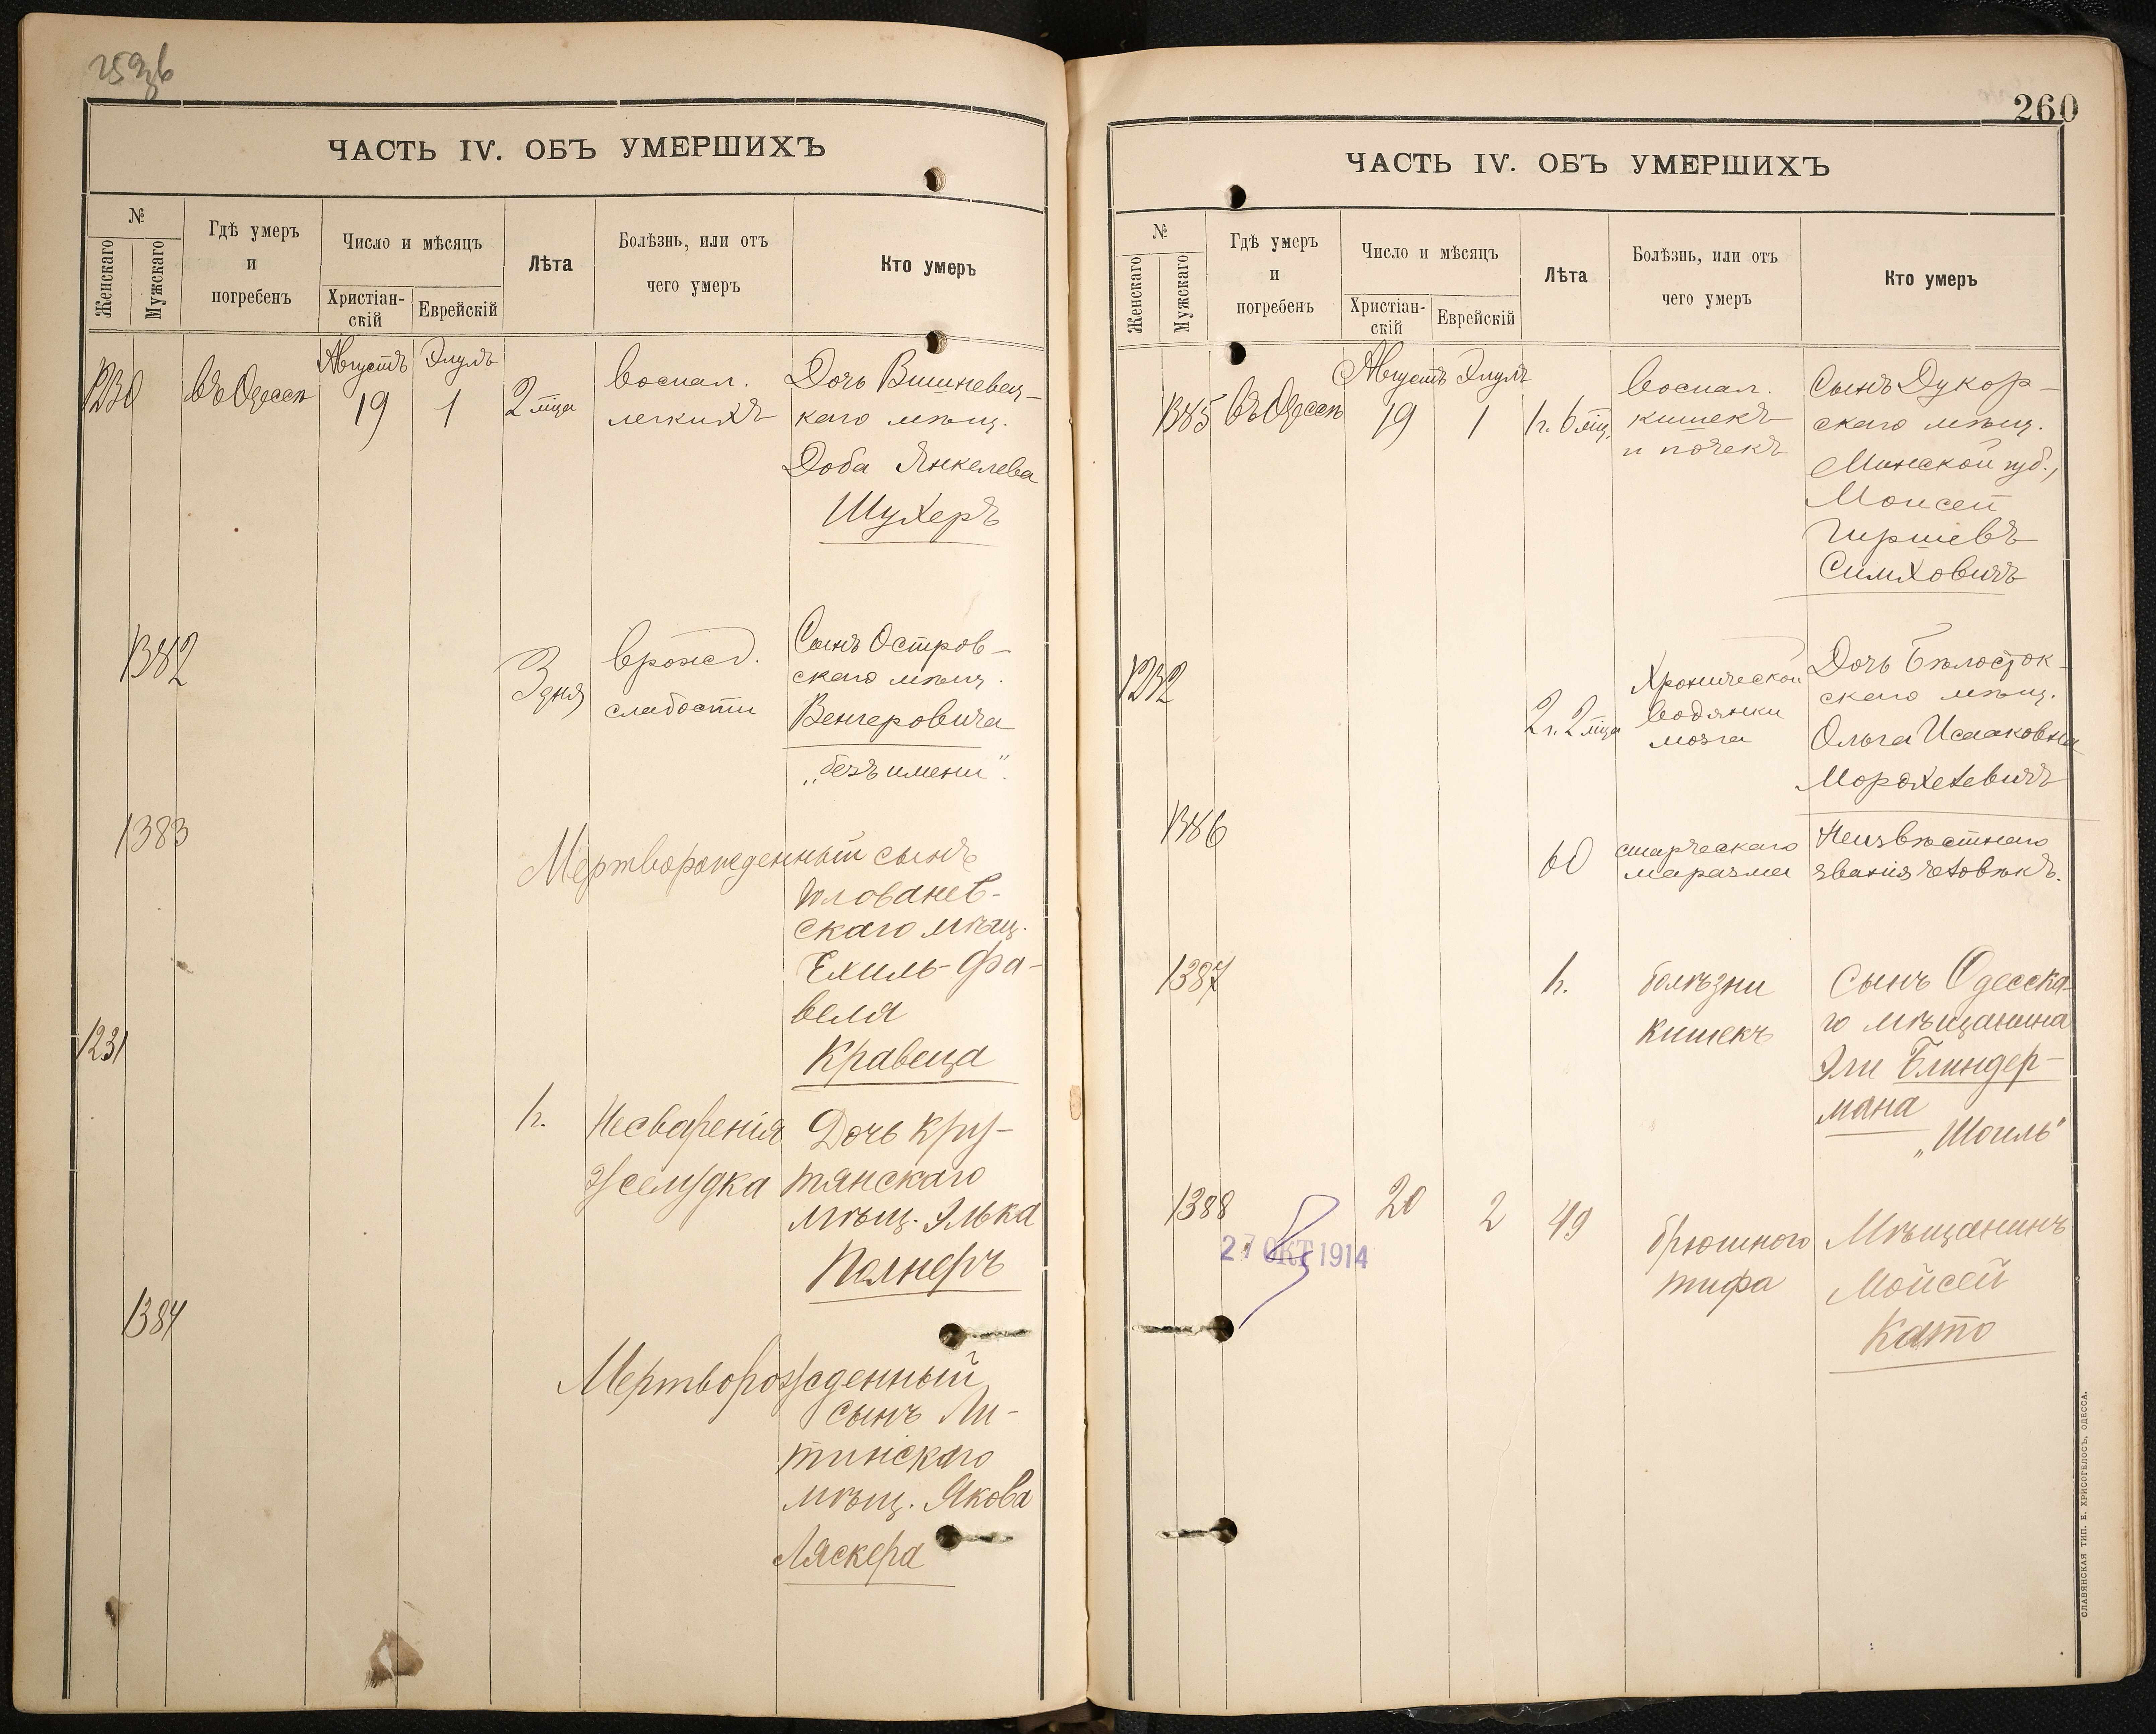 ЧАСТЬ IV. ОБЪ УМЕРШИХЪ
№
Женскаго
Мужскаго
Гдѣ умеръ
и
погребенъ
Число и мѣсяцъ
Христіан-
скій
Еврейскій
Лѣта
Болѣзнь, или отъ
чего умеръ
Кто умеръ
1230
въ Одессѣ
Августъ
19
Элулъ
1
2 мца
воспал.
легкихъ
Дочь Вишневец-
каго мѣщ.
Доба Янкелева
Шухеръ
1382
3 дня
врожд.
слабости
Сынъ Остров-
скаго мѣщ.
Венгеровича
„безъ имени".
1383
Мертворожденный сынъ
Голованев-
скаго мѣщ.
Ехиль-Фа-
веля
Кравеца
1231
1 г.
Несваренія
желудка
Дочь Кру-
тянскаго
мѣщ. Элька
Полнеръ
1384
Мертворожденный
сынъ Ли-
тинскаго
мѣщ. Якова
Ляскера
260
ЧАСТЬ IV. ОБЪ УМЕРШИХЪ
№
Женскаго
Мужскаго
Гдѣ умеръ
и
погребенъ
Число и мѣсяцъ
Христіан-
скій
Еврейскій
Лѣта
Болѣзнь, или отъ
чего умеръ
Кто умеръ
1385
въ Одессѣ
Августъ
19
Элулъ
1
1 г. 6 мц.
воспал.
кишекъ
и почекъ
Сынъ Дукор-
скаго мѣщ.
Минской губ.,
Моисей
Гиршевъ
Симховичъ
1232
2 г. 2 мца
Хронической
водянки
мозга
Дочь Бѣлосток-
скаго мѣщ.
Ольга Исааковна
Мордхелевичъ
1386
60
старческаго
маразма
Неизвѣстнаго
званія человѣкъ.
1387
1 г.
болѣзни
кишекъ
Сынъ Одесска-
го мѣщанина
Эли Блиндер-
мана
„Шоиль"
1388
27 ОКТ 1914
20
2
49
брюшного
тифа
Мѣщанинъ
Мойсей
Като
СЛАВЯНСКАЯ ТИП. Е. ХРИСОГЕЛОСЪ, ОДЕССА.